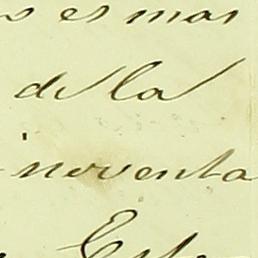 es mas
de la
noventa
Este